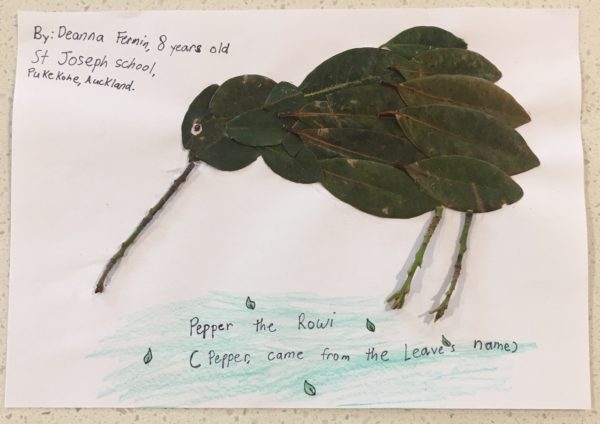 By: Deanna Fermin, 8 years old
St Joseph school,
Pukekohe, Auckland.
Pepper the Rowi
( Pepper, came from the Leave's name)